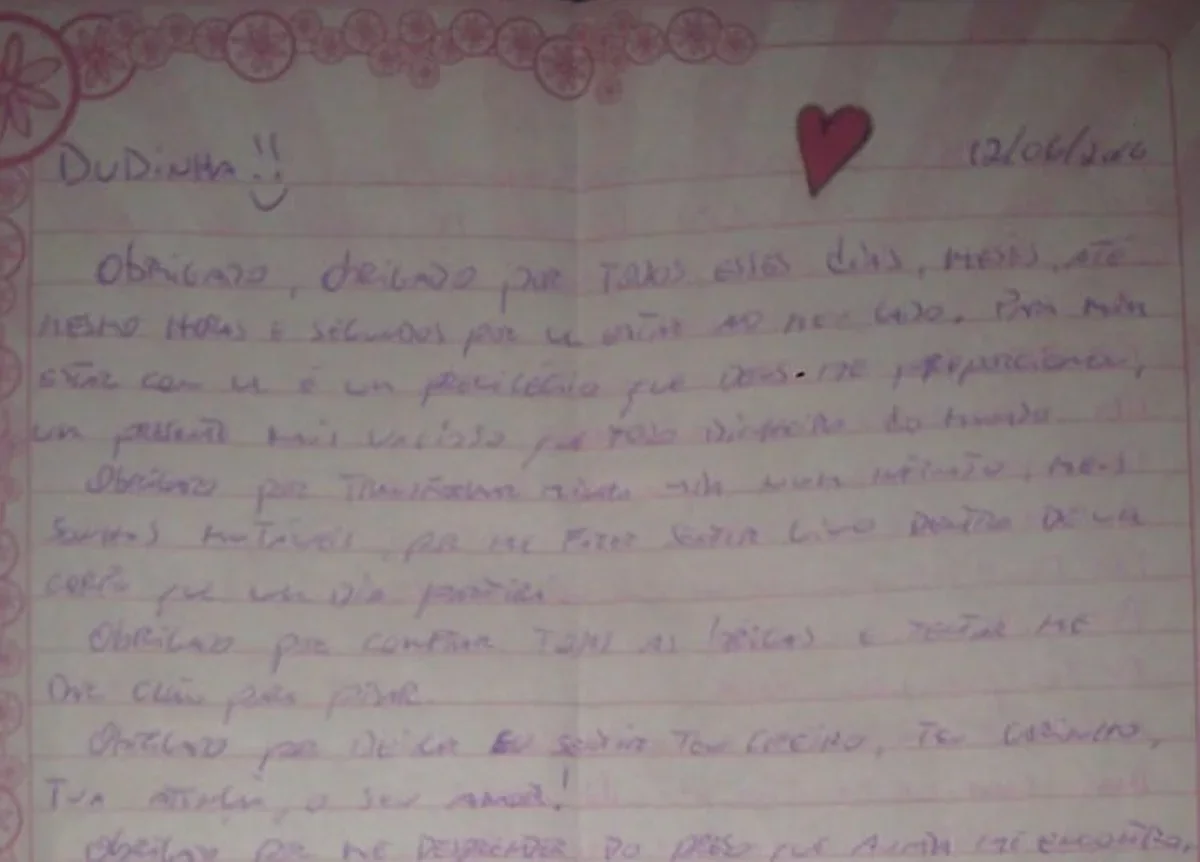 DUDINHA!!
12/06/2016
Obrigado, obrigado por TODOS ESSES dias, MESES, ATÉ
MESMO HORAS E SEGUNDOS por u ESTAR AO MEU LADO. Para mim
ESTAR com u é um privilégio que DEUS ME proporcionou,
um presente mais valioso que TODO DINHEIRO do mundo
Obrigado por Transformar num infinito, MEUS
Sonhos, por ME FAZER SENTIR LIVRE DENTRO DE UM
que um DIA
Obrigado por TODAS AS E TENTAR ME
DAR CHÃO para PISAR
Obrigado por DEIXAR EU SENTIR TEU CHEIRO, TEU CARINHO,
TUA atenção, o seu AMOR!
Obrigado por ME DESPRENDER DO que ME ENCONTRO,